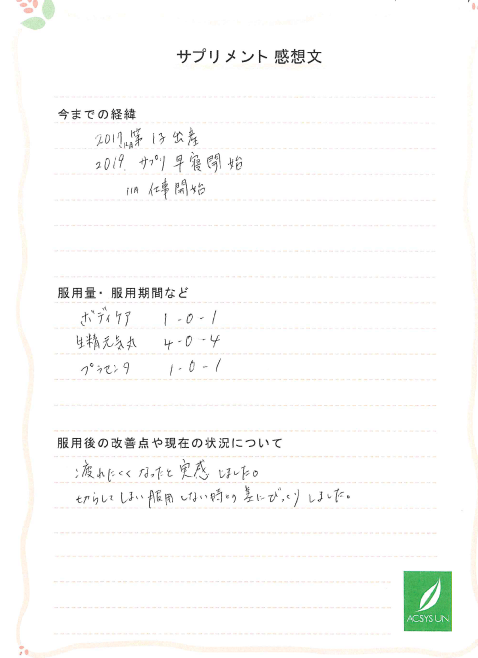 サプリメント 感想文
今までの経緯
2017.12月 第1子出産
2019. サプリ 早寝開始
11月 仕事開始
服用量・服用期間など
ボディケア 1-0-1
生精元気丸 4-0-4
プラセンタ 1-0-1
服用後の改善点や現在の状況について
疲れにくくなったと実感しました。
切らしてしまい服用しない時との差にびっくりしました。
ACSYS UN